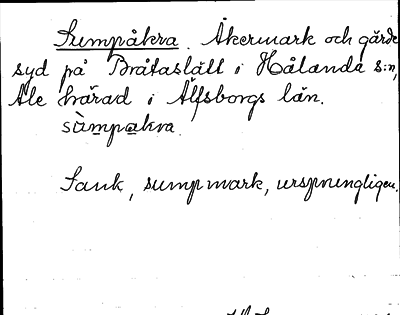 Sumpåkra. Åkermark och gärde
syd på Bråtaslätt i Hålanda s:n,
Ale härad i Älfsborgs län.
sùmpakra.
Sank, sumpmark, ursprungligen.